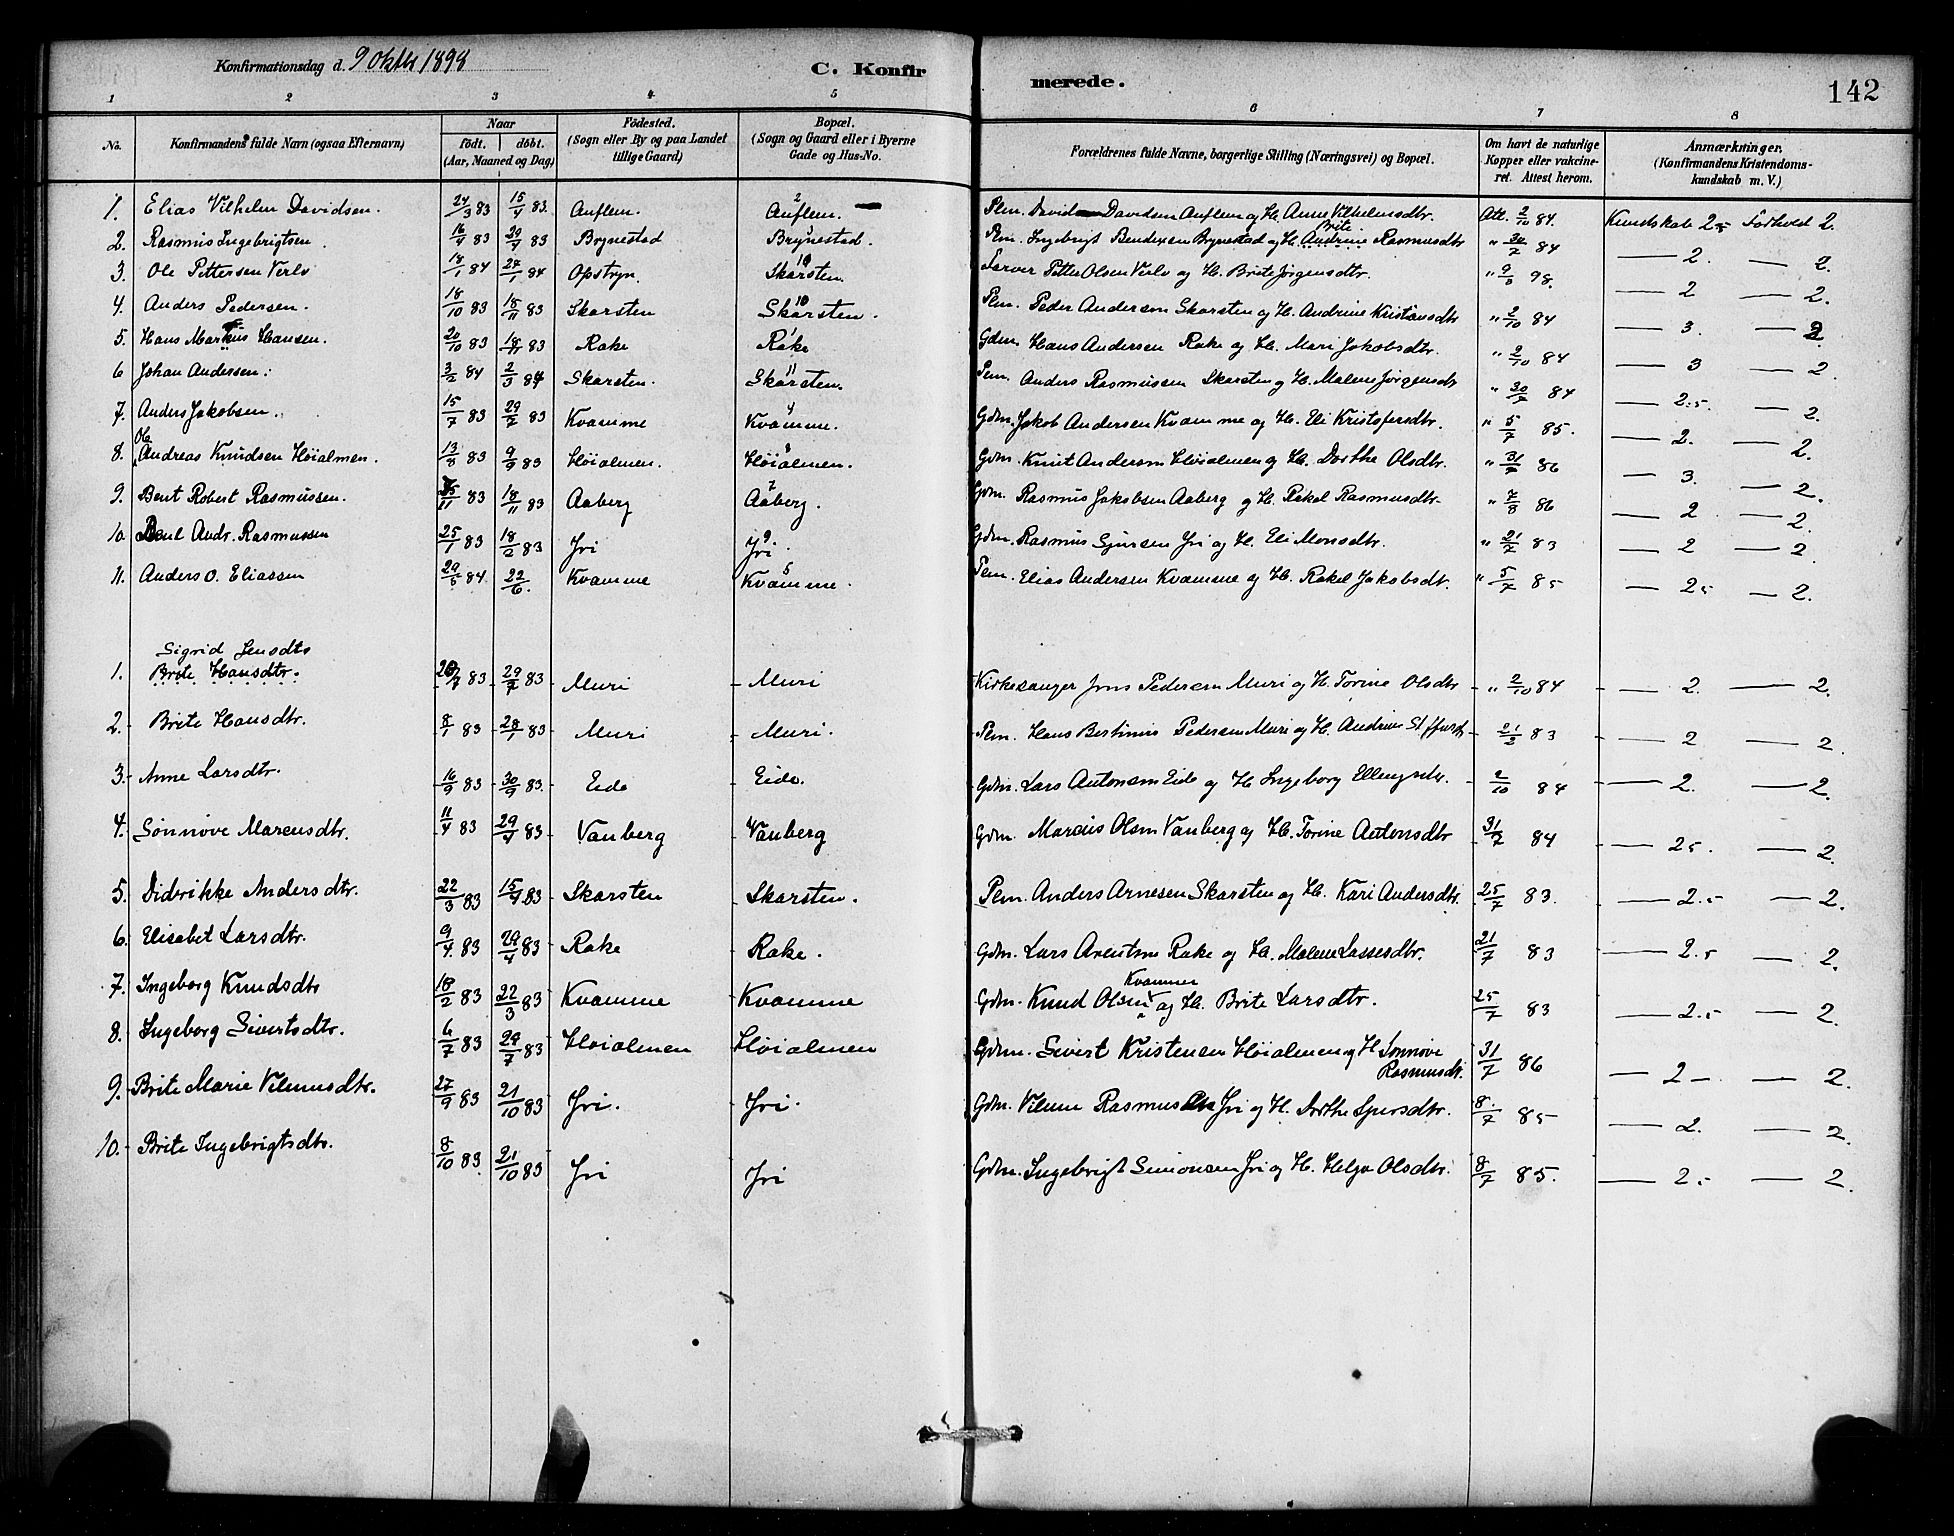 Konfirmationsdag d. 9 Oktbr 1898
C. Konfirmerede.
142
1 2 3 4 5 6 7 8
No. | Konfirmandens fulde Navn (ogsaa Efternavn) | Naar födt. | döbt. (Aar, Maaned og Dag) | Födested. (Sogn eller By og paa Landet tillige Gaard) | Bopæl. (Sogn og Gaard eller i Byerne Gade og Hus-No. | Forældrenes fulde Navne, borgerlige Stilling (Næringsvei) og Bopæl. | Om havt de naturlige Kopper eller vakcineret. Attest herom. | Anmærkninger. (Konfirmandens Kristendomskundskab m. V.)
1. Elias Vilhelm Davidsen. 24/3 83 15/4 83. Auflem. 2 Auflem. Plm. David Davidsen Auflem og H. Anne Vilhelmsdtr. Att. 2/10 84. Kundskab 2,5 Forhold 2.
2. Rasmus Ingebrigtsen. 16/4 83 29/4 83 Brynestad Brynestad. Plm. Ingebrigt Bendixsen Brynestad og H. Brite Andrine Rasmusdtr " 30/7 84 — 2. — 2.
3. Ole Pettersen Verlo 18/1 84 27/1 84 Opstryn. 10 Skarsten. Petter Olsen Verlo og H. Brite Jørgensdtr. " 9/8 98. — 2 — 2.
4. Anders Pedersen. 18/10 83 18/11 83 Skarsten 10 Skarsten. Plm. Peder Andersen Skarsten og H. Andrine Kristiansdtr " 2/10 84 — 3. — 2
5. Hans Markus Hansen. 20/10 83 18/11 83 Rake 1 Rake Gdm. Hans Andersen Rake og H. Mari Jakobsdtr. " 2/10 84 — 3 — 2.
6 Johan Andersen. 3/2 84 2/3 84 Skarsten. 11 Skarsten. Plm. Anders Rasmussen Skarsten og H. Malene Jørgensdtr " 30/7 84 — 2.5. — 2.
7. Anders Jakobsen. 15/7 83 29/7 83 Kvamme 4 Kvamme. Gdm. Jakob Andersen Kvamme og H. Eli Kristofersdtr. " 5/7 85. — 2. — 2.
8. Ole Andreas Knudsen Höialmen. 13/8 83 9/9 83 Höialmen. Höialmen. Gdm. Knut Andersen Höialmen og H. Dorthe Olsdtr. " 31/7 86 — 3. — 2.
9. Bent Robert Rasmussen. 83 18/11 83 Aaberg 7 Aaberg. Gdm. Rasmus Jakobsen Aaberg og H. Rakel Rasmusdtr. " 7/8 86 — 2 — 2.
10. Paul Andr. Rasmussen 25/1 83 18/2 83 Jri 9 Jri. Gdm. Rasmus Sjursen Jri og H. Eli Monsdtr. " 21/7 83 — 2 — 2
11. Anders O. Eliassen 29/5 84. 22/6. Kvamme 5 Kvamme. Plm. Elias Andersen Kvamme og H. Rakel Jakobsdtr. " 5/7 85 — 2 5 — 2.
Sigrid Jensdtr
1. Brite Hansdtr. 83 29/7 83 Muri Muri Kirkesanger Jens Pedersen Muri og H. Torine Olsdtr " 2/10 84 — 2. — 2.
2. Brite Hansdtr. 8/1 83 28/1 83 Muri Muri. Plm. Hans Bertinius Pedersen Muri og H. Andrine 21/2 83 — 2 — 2.
3. Anne Larsdtr. 16/9 83 30/9 83. Eide Eide. Gdm. Lars Antonsen Eide og H Ingeborg Ellingsdtr. 2/10 84 — 2. — 2.
4. Sönnöve Marcusdtr. 11/4 83 29/4 83 Vanberg Vanberg Gdm. Marcus Olsen Vanberg og H. Torine Antonsdtr 31/7 84 — 2 5. — 2.
5. Didrikke Andersdtr. 22/3 83 15/4 83 Skarsten Skarsten. Plm. Anders Arnesen Skarsten og H. Kari Andersdtr. 25/7 83. — 2.5 — 2.
6. Elisabet Larsdtr. 9/4. 83 29/4 83 Rake Rake. Gdm. Lars Arentsen Rake og H. Malene Lassesdtr. 21/7 83 — 2.5 — 2.
7. Ingeborg Knudsdtr 18/2 83 22/3 83 Kvamme Kvamme Gdm. Knud Olsen Kvamme og H. Brite Larsdtr. 25/7 83 — 2.5 — 2.
8. Ingeborg Sivertsdtr. 6/7 83 29/7 83 Höialmen Höialmen Gdm. Sivert Kristensen Höialmen og H Sönnöve Rasmusdtr. 31/7 86 — 2 — 2.
9. Brite Marie Vilmusdtr. 27/9 83 21/10 83 Jri. Jri. Gdm. Vilum Rasmussen Jri og H. Dorthe Sjursdtr. 8/7 85 — 2. — 2.
10. Brite Ingebrigtsdtr. 8/10 83 21/10 83 Jri Jri Gdm. Ingebrigt Simonsen Jri og H. Helga Olsdtr. 8/7 85. — 2. — 2.